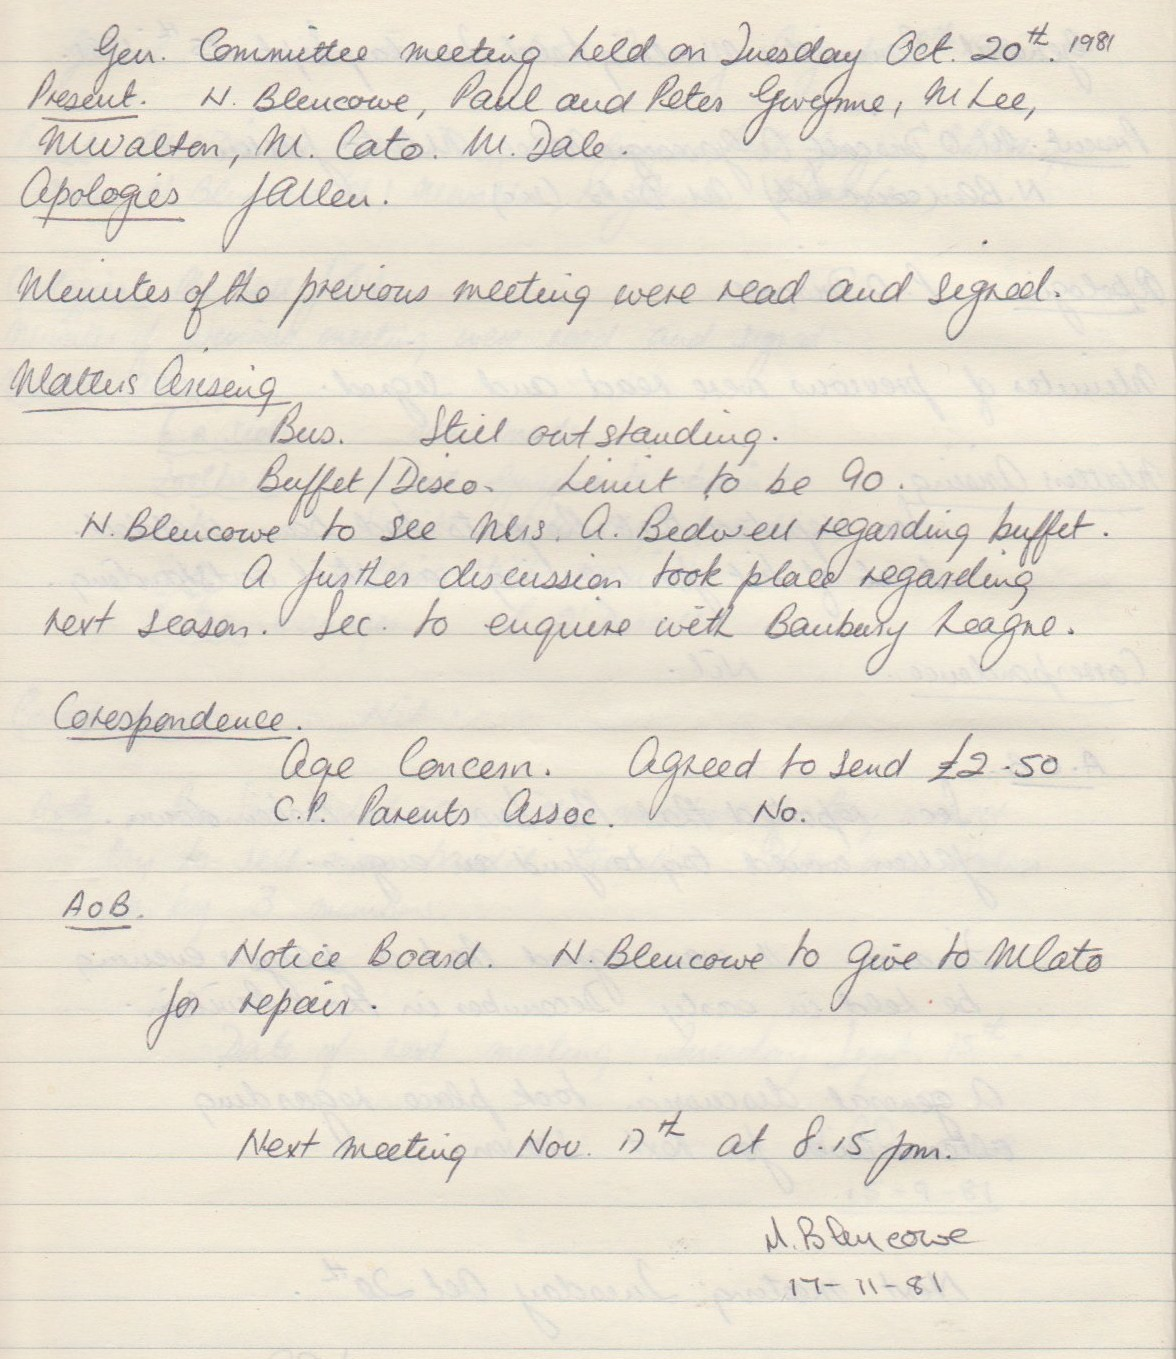 Gen. Committee meeting held on Tuesday Oct. 20th. 1981
Present. N. Blencowe, Paul and Peter Gwynne, M Lee,
M Walton, M. Cato. M. Dale.
Apologies J Allen.
Minutes of the previous meeting were read and signed.
Matters Arising
Bus. Still outstanding.
Buffet/Disco. Limit to be 90.
N. Blencowe to see Mrs. A. Bedwell regarding buffet.
A further discussion took place regarding
next season. Sec. to enquire with Banbury League.
Corespondence.
Age Concern. Agreed to send £2.50
C.P. Parents Assoc. No.
AoB.
Notice Board. N. Blencowe to give to M Cato
for repair.
Next meeting Nov. 17th at 8.15 pm.
N. Blencowe
17-11-81